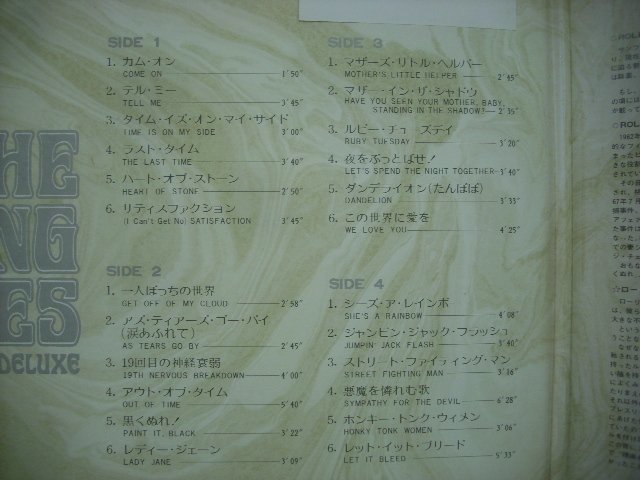 HE
NG
ES
DELUXE
SIDE 1
1. カム・オン
COME ON 1'50"
2. テル・ミー
TELL ME 3'45"
3. タイム・イズ・オン・マイ・サイド
TIME IS ON MY SIDE 3'00"
4. ラスト・タイム
THE LAST TIME 3'40"
5. ハート・オブ・ストーン
HEART OF STONE 2'50"
6. リティスファクション
(I Can't Get No) SATISFACTION 3'45"
SIDE 2
1. 一人ぼっちの世界
GET OFF OF MY CLOUD 2'58"
2. アズ・ティアーズ・ゴー・バイ
(涙あふれて)
AS TEARS GO BY 2'45"
3. 19回目の神経衰弱
19TH NERVOUS BREAKDOWN 4'00"
4. アウト・オブ・タイム
OUT OF TIME 5'40"
5. 黒くぬれ!
PAINT IT, BLACK 3'22"
6. レディー・ジェーン
LADY JANE 3'09"
SIDE 3
1. マザーズ・リトル・ヘルパー
MOTHER'S LITTLE HELPER 2'45"
2. マザー・イン・ザ・シャドウ
HAVE YOU SEEN YOUR MOTHER, BABY,
STANDING IN THE SHADOW? 2'35"
3. ルビー・チューズデイ
RUBY TUESDAY 3'20"
4. 夜をぶっとばせ!
LET'S SPEND THE NIGHT TOGETHER 3'40"
5. ダンデライオン(たんぽぽ)
DANDELION 3'33"
6. この世界に愛を
WE LOVE YOU 4'25"
SIDE 4
1. シーズ・ア・レインボー
SHE'S A RAINBOW 4'08"
2. ジャンピン・ジャック・フラッシュ
JUMPIN' JACK FLASH 3'40"
3. ストリート・ファイティング・マン
STREET FIGHTING MAN 3'16"
4. 悪魔を憐れむ歌
SYMPATHY FOR THE DEVIL 6'28"
5. ホンキー・トンク・ウィメン
HONKY TONK WOMEN 3'06"
6. レット・イット・ブリード
LET IT BLEED 5'33"